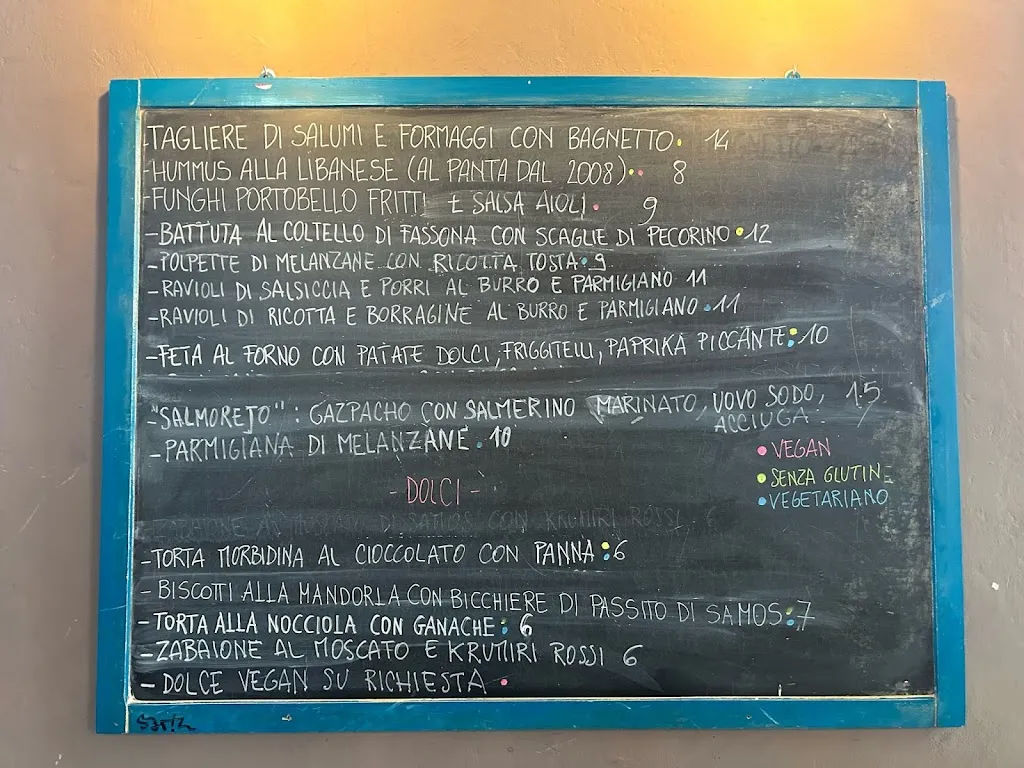 -TAGLIERE DI SALUMI E FORMAGGI CON BAGNETTO• 14
-HUMMUS ALLA LIBANESE (AL PANTA DAL 2008)•• 8
-FUNGHI PORTOBELLO FRITTI E SALSA AIOLI• 9
-BATTUTA AL COLTELLO DI FASSONA CON SCAGLIE DI PECORINO•12
-POLPETTE DI MELANZANE CON RICOTTA TOSTA•9
-RAVIOLI DI SALSICCIA E PORRI AL BURRO E PARMIGIANO 11
-RAVIOLI DI RICOTTA E BORRAGINE AL BURRO E PARMIGIANO •11
-FETA AL FORNO CON PATATE DOLCI, FRIGGITELLI, PAPRIKA PICCANTE:10
-"SALMOREJO": GAZPACHO CON SALMERINO MARINATO, UOVO SODO, 15
ACCIUGA
-PARMIGIANA DI MELANZANE•10
• VEGAN
• SENZA GLUTINE
• VEGETARIANO
- DOLCI -
DI SAMOS CON KRUMIRI ROSSI 6
-TORTA MORBIDINA AL CIOCCOLATO CON PANNA:6
- BISCOTTI ALLA MANDORLA CON BICCHIERE DI PASSITO DI SAMOS:7
-TORTA ALLA NOCCIOLA CON GANACHE: 6
-ZABAIONE AL MOSCATO E KRUMIRI ROSSI 6
- DOLCE VEGAN SU RICHIESTA •